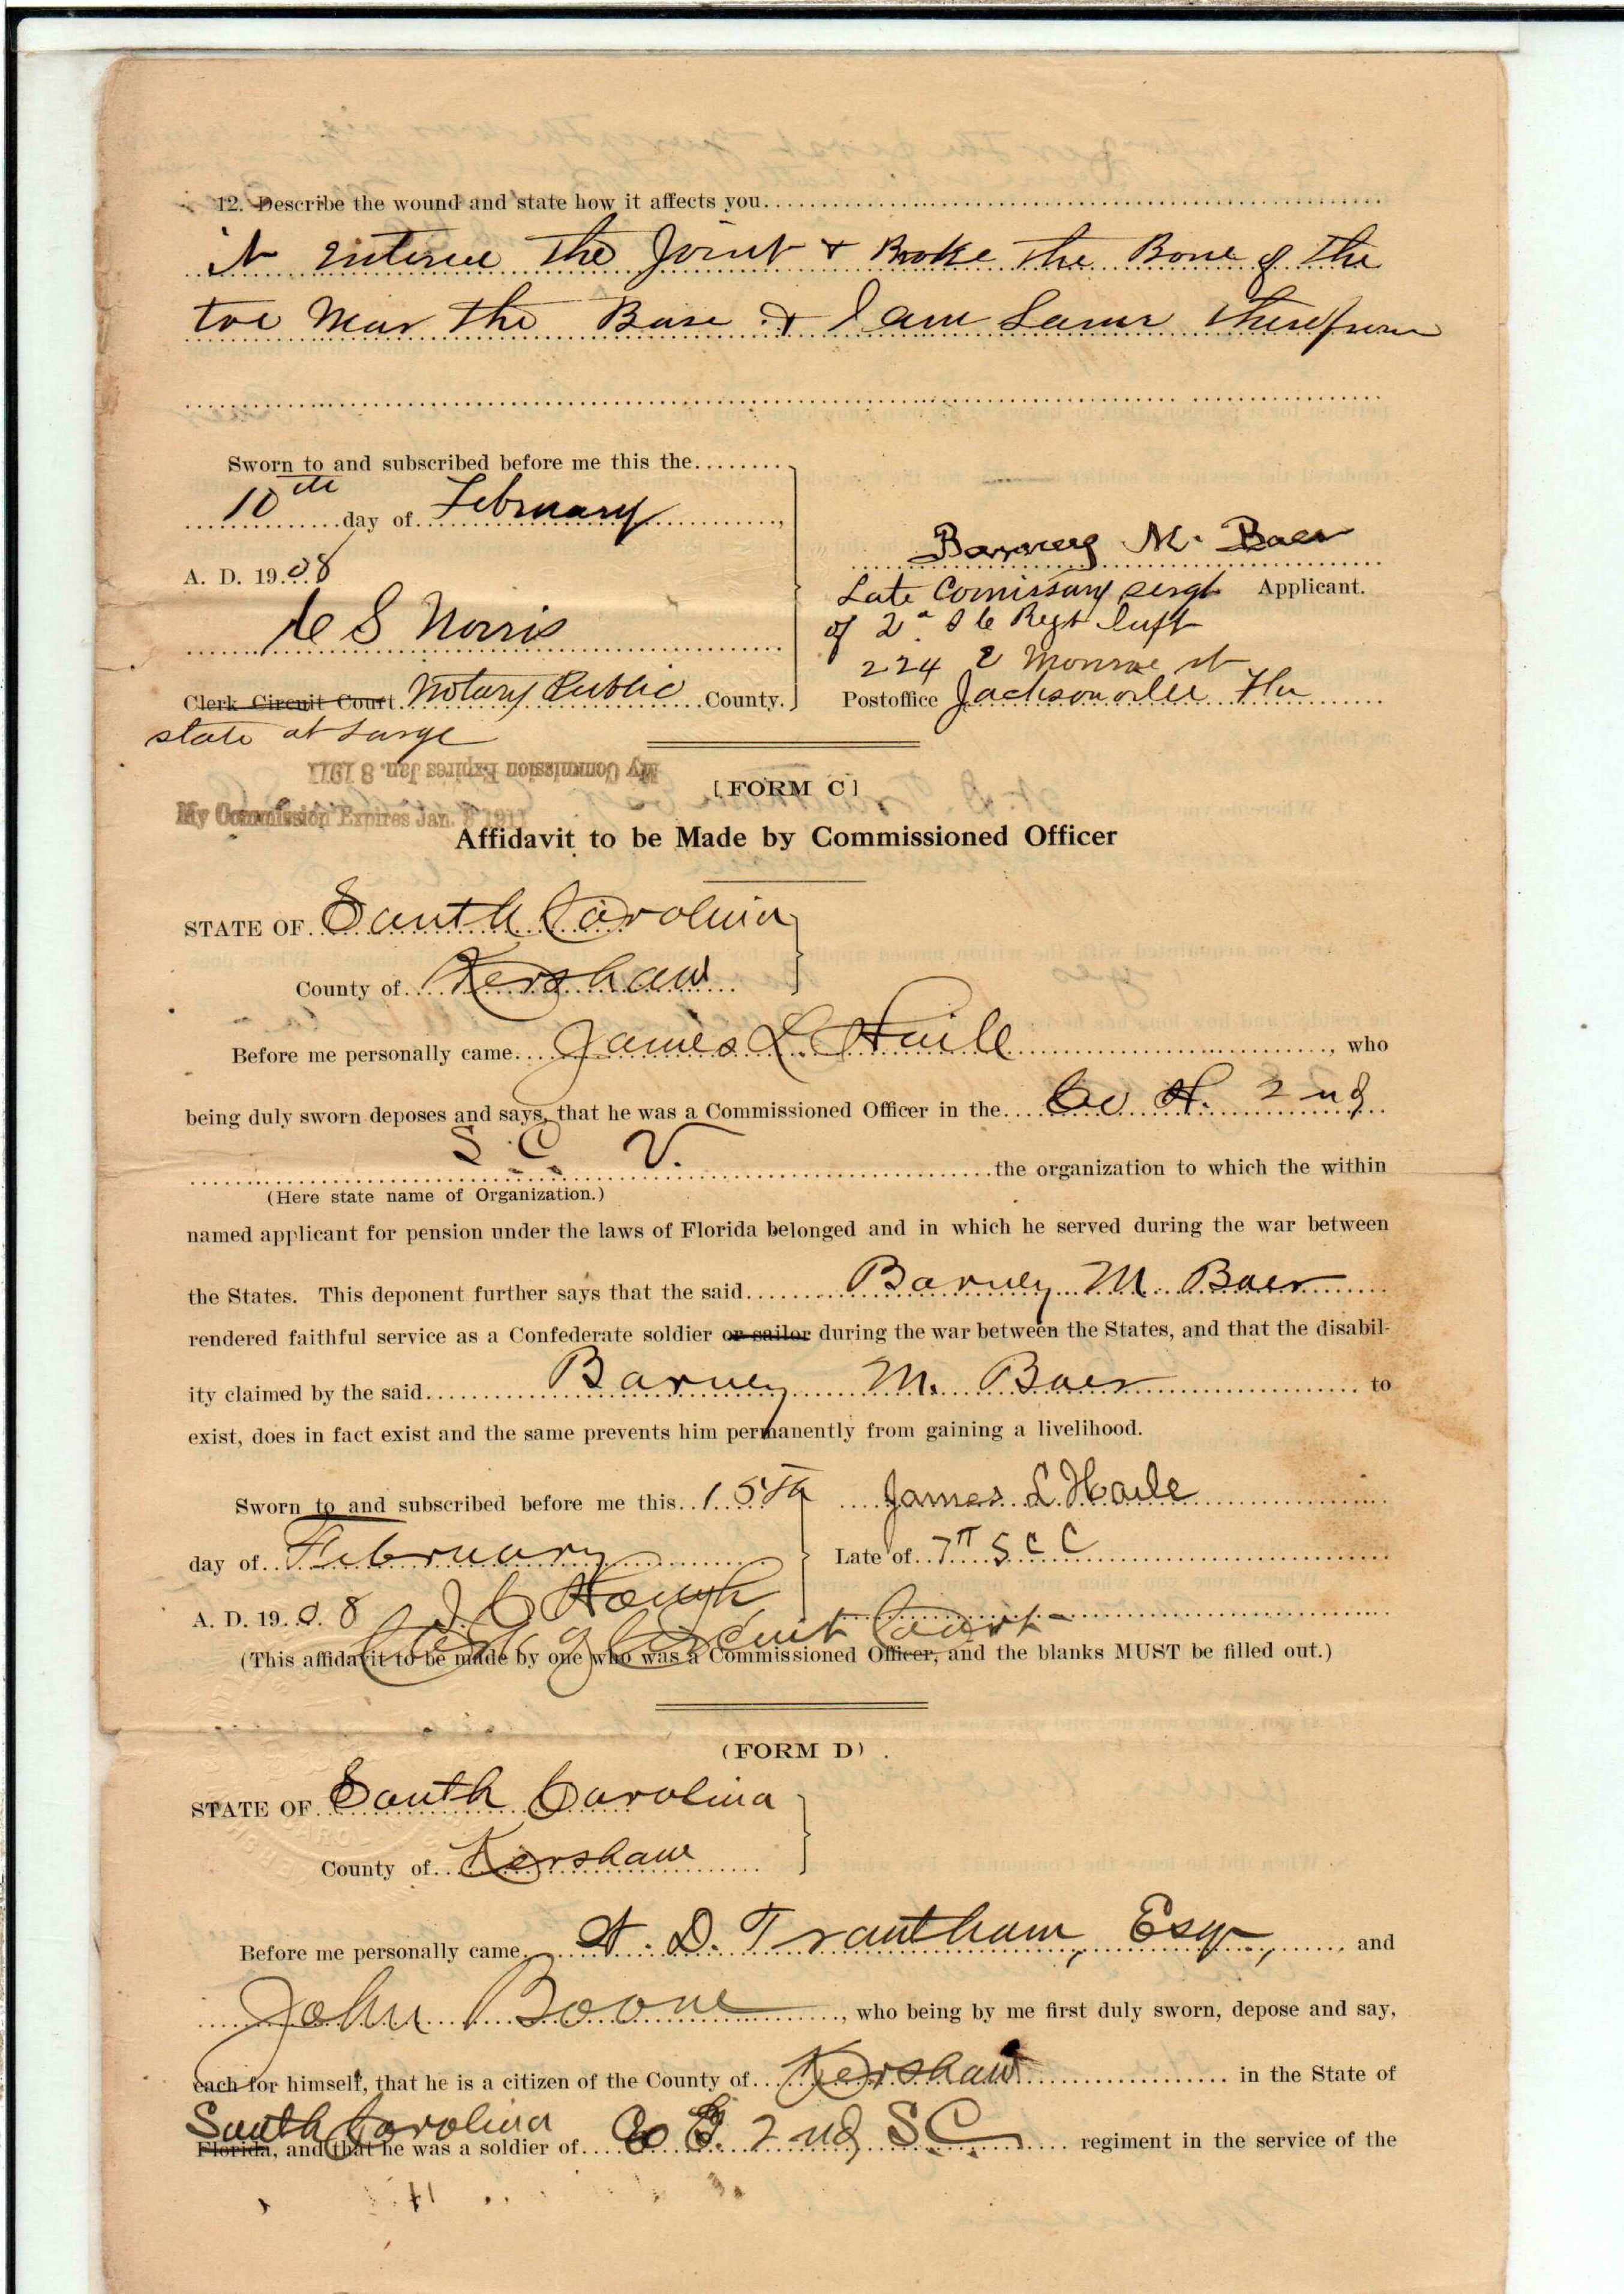 12. Describe the wound and state how it affects you
it entered the Joint & Broke the Bone of the
toe Near the Base & I am Lame therefrom
Sworn to and subscribed before me this the
10th day of February,
A. D. 1908
Barney M. Baer
Late Comissary Sergt Applicant.
of 2d S C Regt Inft
224 E Monroe st
Postoffice Jacksonville Fla
C S Norris
Clerk Circuit Court Notary Public County.
state at Large
My Commission Expires Jan. 8 1911
My Commission Expires Jan. 8 1911
[FORM C]
Affidavit to be Made by Commissioned Officer
STATE OF South Carolina
County of Kershaw
Before me personally came James L. Haile, who
being duly sworn deposes and says, that he was a Commissioned Officer in the Co H. 2nd
S. C. V. the organization to which the within
(Here state name of Organization.)
named applicant for pension under the laws of Florida belonged and in which he served during the war between
the States. This deponent further says that the said Barney M. Baer
rendered faithful service as a Confederate soldier or sailor during the war between the States, and that the disabil-
ity claimed by the said Barney M. Baer to
exist, does in fact exist and the same prevents him permanently from gaining a livelihood.
Sworn to and subscribed before me this 15th
day of February
A. D. 1908
James L Haile
Late of 7th S C C
Clerk of Circuit Court
(This affidavit to be made by one who was a Commissioned Officer, and the blanks MUST be filled out.)
(FORM D)
STATE OF South Carolina
County of Kershaw
Before me personally came D. Trantham, Esq, and
John Boone, who being by me first duly sworn, depose and say,
each for himself, that he is a citizen of the County of Kershaw in the State of
South Carolina
Florida, and that he was a soldier of Co 2nd S C regiment in the service of the